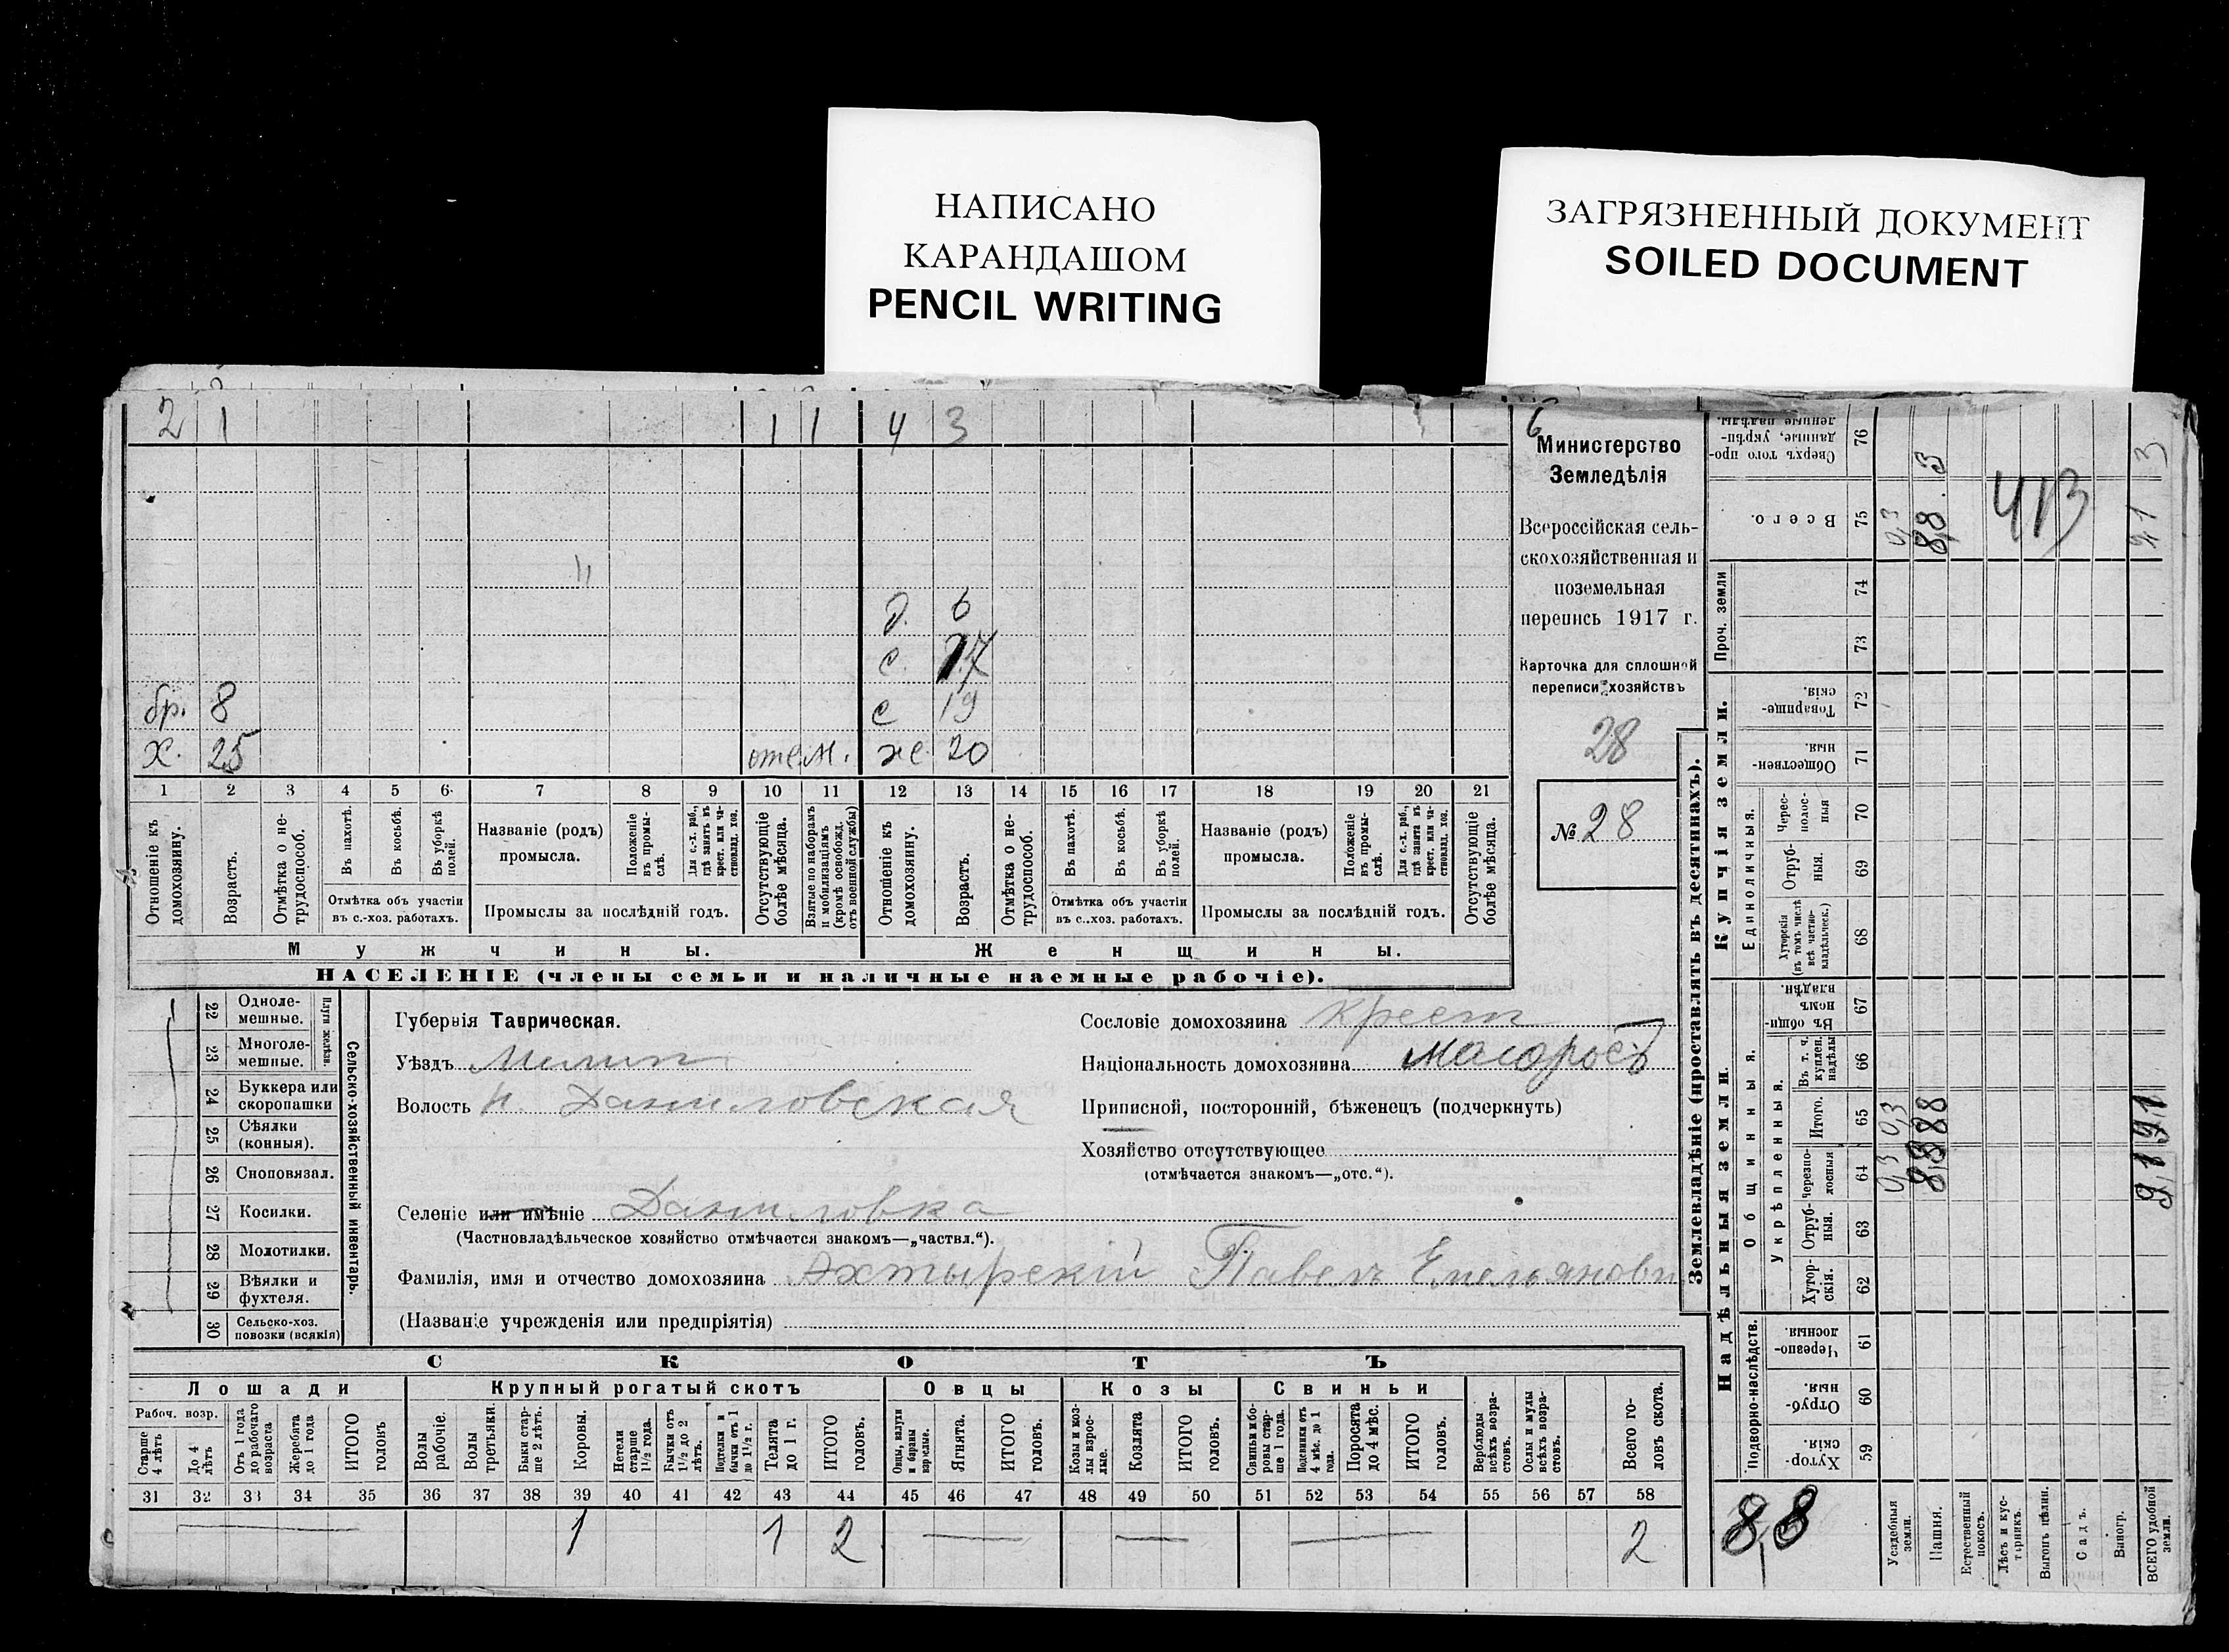 НАПИСАНО
КАРАНДАШОМ
PENCIL WRITING
ЗАГРЯЗНЕННЫЙ ДОКУМЕНТ
SOILED DOCUMENT
2 1 1 1 4 3
д. 6
с. 17
бр. 8 с 19
х. 25 отс. м. ж. 20
1 2 3 4 5 6 7 8 9 10 11 12 13 14 15 16 17 18 19 20 21
Отношеніе къ домохозяину.
Возрастъ.
Отмѣтка о не-трудоспособ.
Въ пахотѣ.
Въ косьбѣ.
Въ уборкѣ полей.
Отмѣтка объ участіи въ с.-хоз. работахъ.
Названіе (родъ) промысла.
Положеніе въ промы-слѣ.
Для с.-х. раб., гдѣ занятъ въ крест. или ча-стновлад. хоз.
Промыслы за послѣдній годъ.
Отсутствующіе болѣе мѣсяца.
Взятые по наборамъ и мобилизаціямъ (кромѣ освобожд. отъ военной службы)
Отношеніе къ домохозяину.
Возрастъ.
Отмѣтка о не-трудоспособ.
Въ пахотѣ.
Въ косьбѣ.
Въ уборкѣ полей.
Отмѣтка объ участіи въ с..хоз. работахъ.
Названіе (родъ) промысла.
Положеніе въ промы-слѣ.
Для с.-х. раб., гдѣ занята въ крест. или ча-стновлад. хоз.
Промыслы за послѣдній годъ.
Отсутствующіе болѣе мѣсяца.
Мужчины. Женщины.
НАСЕЛЕНІЕ (члены семьи и наличные наемные рабочіе).
6
Министерство
Земледѣлія
Всероссійская сель-
скохозяйственная и
поземельная
перепись 1917 г.
Карточка для сплошной
переписи хозяйствъ
28
№ 28
22 Одноле-мешные.
23 Многоле-мешные.
Плуги желѣзн.
24 Буккера или скоропашки
25 Сѣялки (конныя).
26 Сноповязал.
27 Косилки.
28 Молотилки.
29 Вѣялки и фухтеля.
30 Сельско-хоз. повозки (всякія)
Сельско-хозяйственный инвентарь.
Губернія Таврическая.
Уѣздъ Мелит
Волость Н. Даниловская
Селеніе или имѣніе Даниловка
(Частновладѣльческое хозяйство отмѣчается знакомъ—„частвл.“).
Фамилія, имя и отчество домохозяина Ахтырскій Павелъ Емельянови
(Названіе учрежденія или предпріятія)
Сословіе домохозяина крест
Національность домохозяина малорос
Приписной, посторонній, бѣженецъ (подчеркнуть)
Хозяйство отсутствующее
(отмѣчается знакомъ—„отс.“).
СКОТЪ
Лошади Крупный рогатый скотъ Овцы Козы Свиньи
Рабоч. возр.
Старше 4 лѣтъ
До 4 лѣтъ
Отъ 1 года до рабочаго возраста
Жеребята до 1 года
ИТОГО головъ
Волы рабочіе.
Волы третьяки.
Быки стар-ше 2 лѣтъ.
Коровы.
Нетели старше 1½ года.
Бычки отъ 1½ до 2 лѣтъ.
Подтелки и бычки отъ 1 до 1½ г.
Телята до 1 г.
ИТОГО головъ.
Овцы, валухи и бараны взрослые.
Ягнята.
ИТОГО головъ.
Козы и коз-лы взрос-лые.
Козлята
ИТОГО головъ.
Свиньи и бо-ровы стар-ше 1 года.
Подсвинки отъ 4 мѣс. до 1 года.
Поросята до 4 мѣс.
ИТОГО головъ.
Верблюды всѣхъ возра-стовъ.
Ослы и мулы всѣхъ возра-стовъ.
Всего го-ловъ скота.
31 32 33 34 35 36 37 38 39 40 41 42 43 44 45 46 47 48 49 50 51 52 53 54 55 56 57 58
1 1 2 2
Землевладѣніе (проставлять въ десятинахъ).
Надѣльныя земли. Купчія земли.
Подворно-наслѣдств.
Общинныя.
Укрѣпленныя.
Единоличныя.
Проч. земли
Хутор-скія. 59
Отруб-ныя 60
Черезпо-лосныя. 61
Хутор-скія. 62
Отруб-ныя. 63
Черезпо-лосныя 64
Итого. 65
Въ т. ч. куплен. надѣлы 66
Въ общи-номъ владѣн. 67
Хуторскія (въ томъ числѣ всѣ частно-владѣльческ.) 68
Отруб-ныя. 69
Черес-полос-ныя 70
Обществен-ныя. 71
Товарище-скія. 72
73
74
Всего. 75
Сверхъ того про-данные, укрѣп-ленные надѣлы. 76
Усадебныя земли.
Пашня.
Естественный покосъ.
Лѣсъ и кус-тарникъ.
Выгонъ цѣлин.
Садъ.
Виногр.
ВСЕГО удобной земли.
0,3 0,3 0,3
8,8 8,8 8,8 3
413
9,1 9,1 9,1 3
8,8